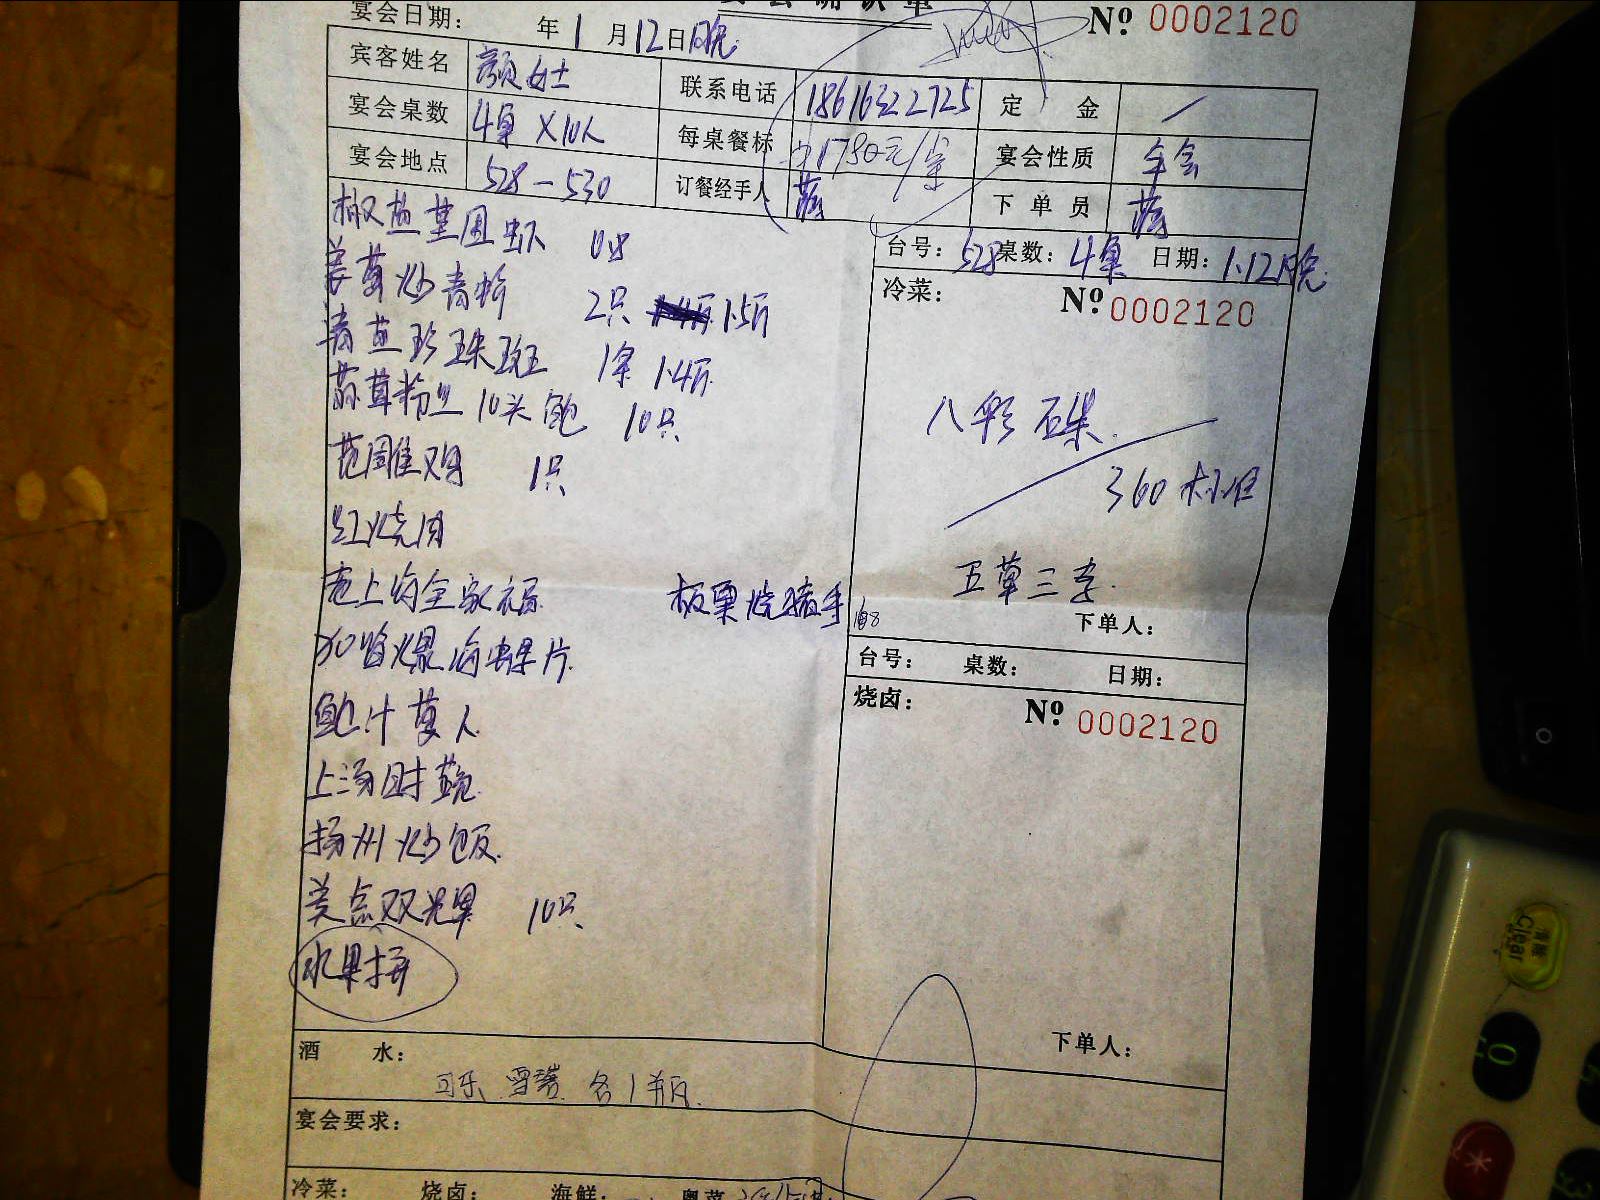 宴会确认单
宴会日期： 年1月12日晚 Nº 0002120
宾客姓名 颜女士 联系电话 定 金 /
宴会桌数 4桌×10人 每桌餐标 1780元/桌 宴会性质 年会
宴会地点 528-530 订餐经手人 下单员
台号：528 桌数：4桌 日期：1.12晚
冷菜： Nº 0002120
椒盐基围虾
姜葱炒青蟹 2只 1.5斤
清蒸珍珠斑 1条 1.4斤
蒜茸粉丝10头鲍 10只
花雕鸡 1只
红烧肉
老上海全家福 板栗烧猪手
XO酱爆海螺片
鲍汁菌人
上汤时蔬
扬州炒饭
美点双辉 10只
水果拼
八彩碟
360标准
五荤三素
下单人：
台号： 桌数： 日期：
烧卤： Nº 0002120
下单人：
酒 水：
可乐 雪碧 各1瓶
宴会要求：
冷菜： 烧卤： 海鲜： 粤菜